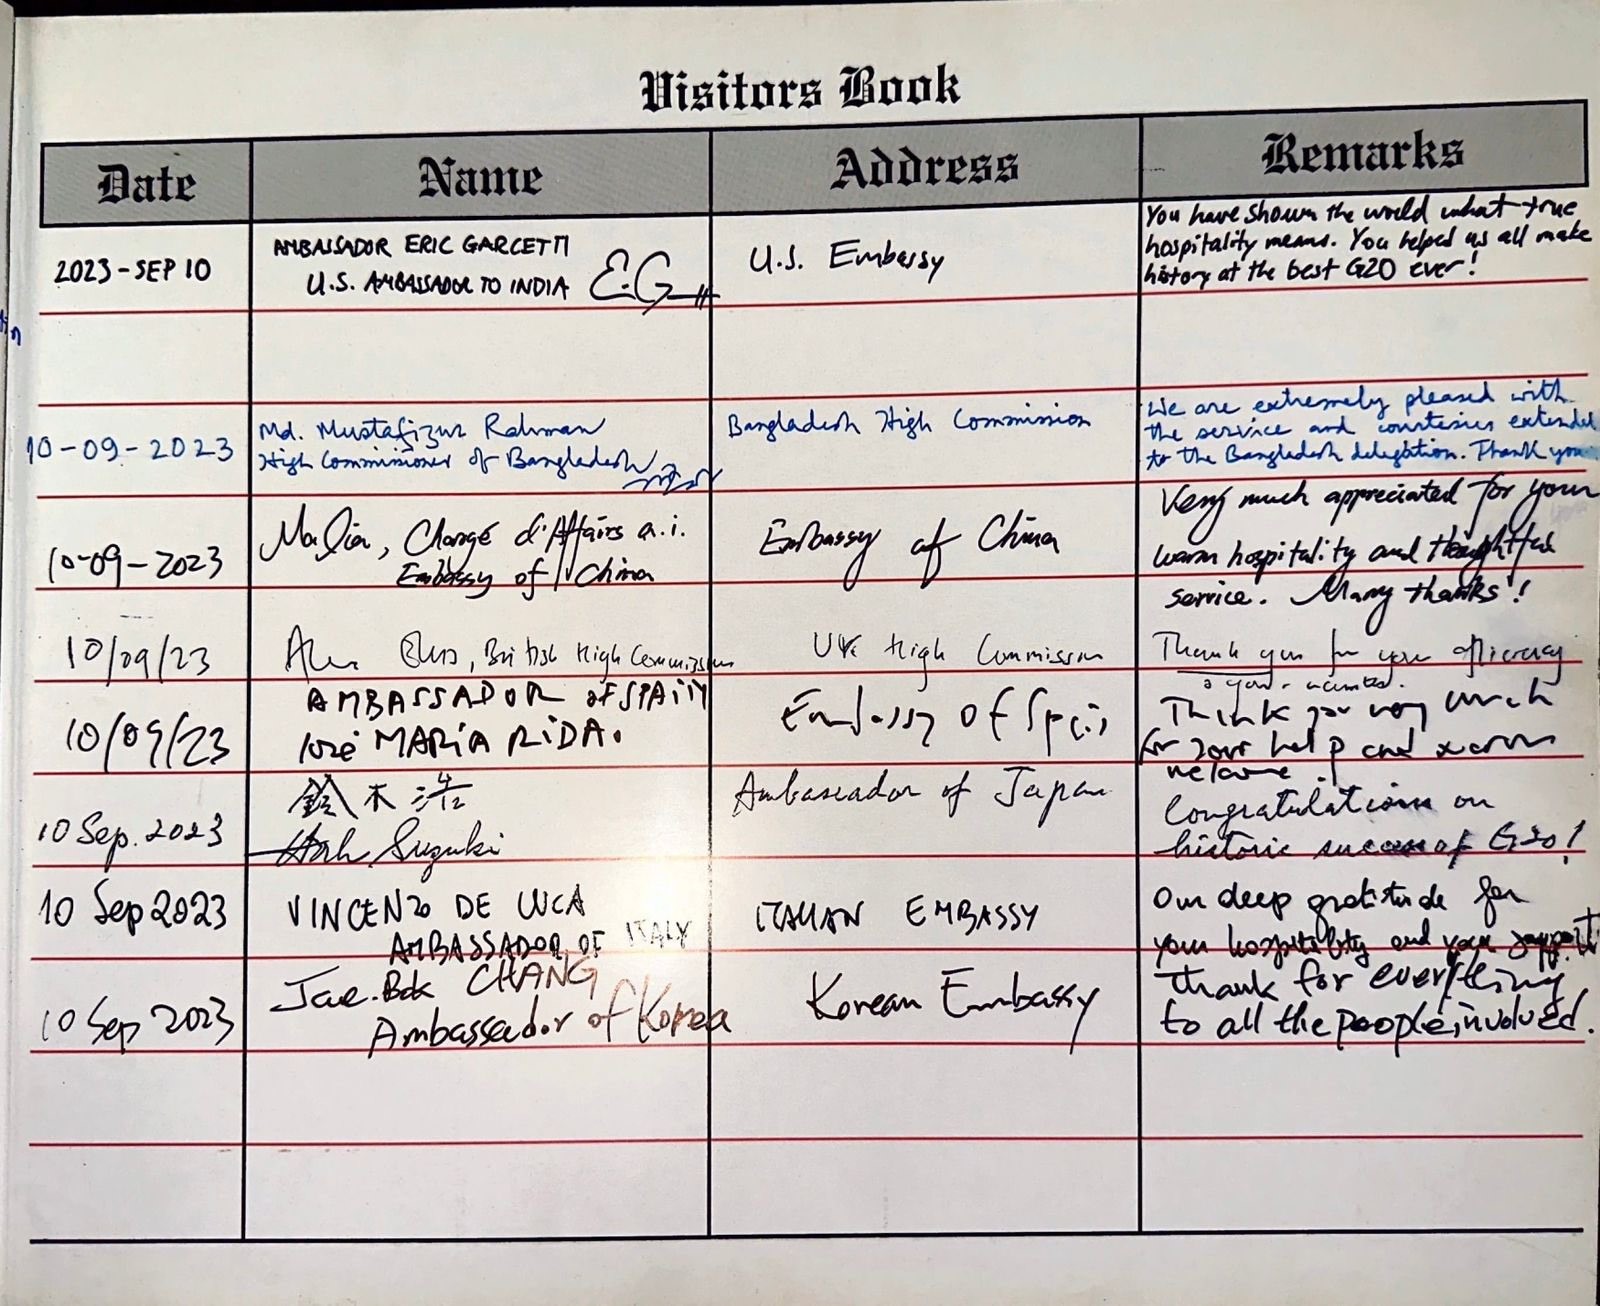 Visitors Book
Date Name Address Remarks
2023-SEP 10
AMBASSADOR ERIC GARCETTI
U.S. AMBASSADOR TO INDIA E.G
U.S. Embassy
You have shown the world what true
hospitality means. You helped us all make
history at the best G20 ever!
10-09-2023
Md. Mustafizur Rahman
High Commissioner of Bangladesh
Bangladesh High Commission
We are extremely pleased with
the service and courtesies extended
to the Bangladesh delegation. Thank you
10-09-2023
Ma Jia, Chargé d'Affairs a.i.
Embassy of China
Embassy of China
Very much appreciated for your
warm hospitality and thoughtful
service. Many thanks!
10/09/23
Alex Ellis, British High Commission
UK High Commission
Thank you for your efficiency
10/09/23
AMBASSADOR OF SPAIN
José MARÍA RIDAO
Embassy of Spain
Thank you very much
for your help and warm
welcome.
10 Sep. 2023
鈴木 浩
Suzuki
Ambassador of Japan
Congratulations on
historic success of G20!
10 Sep 2023
VINCENZO DE LUCA
AMBASSADOR OF ITALY
ITALIAN EMBASSY
Our deep gratitude for
your hospitality and your support
10 Sep 2023
Jae-Bok CHANG
Ambassador of Korea
Korean Embassy
Thank for everything
to all the people involved.